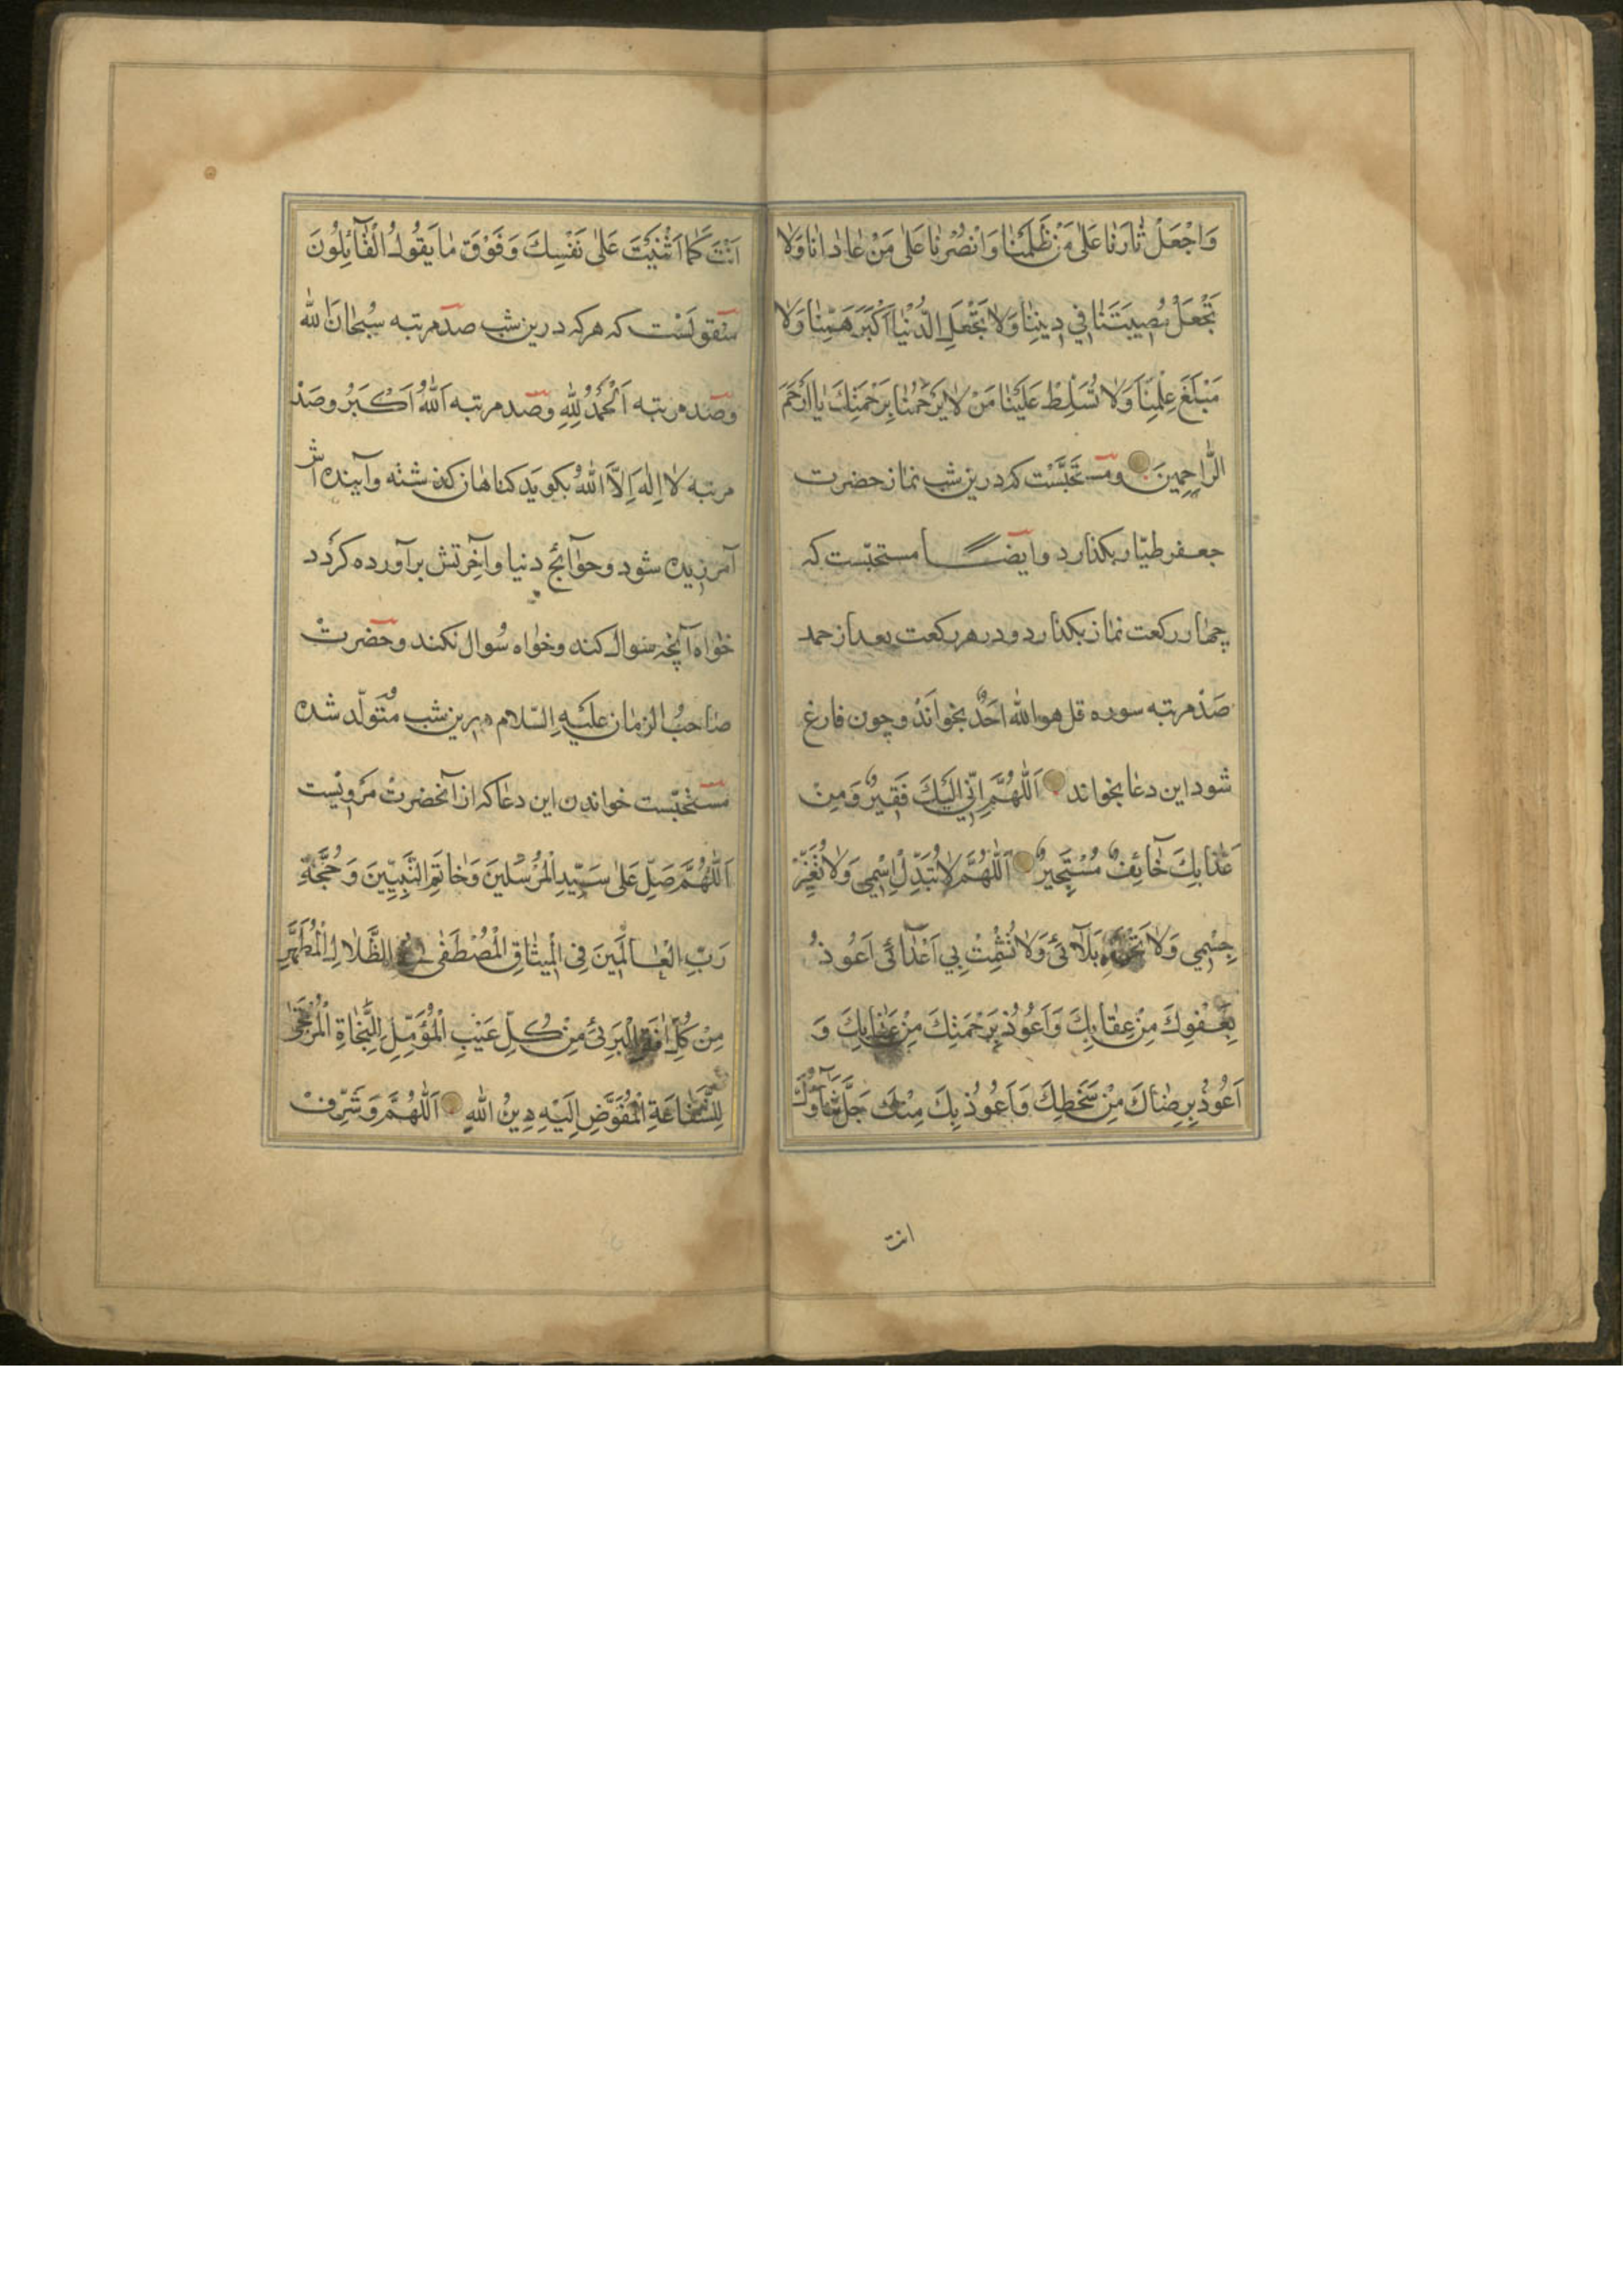 وَاجْعَلْ ثٰارَنٰا عَلٰى مَنْ ظَلَمَنٰا وَانْصُرْنٰا عَلٰى مَنْ عٰادٰانٰا وَلاٰ
تَجْعَلْ مُصِيبَتَنٰا فِي دِينِنٰا وَلاٰ تَجْعَلِ الدُّنْيٰا اَكْبَرَ هَمِّنٰا وَلاٰ
مَبْلَغَ عِلْمِنٰا وَلاٰ تُسَلِّطْ عَلَيْنٰا مَنْ لاٰ يَرْحَمُنٰا بِرَحْمَتِكَ يٰا اَرْحَمَ
الرّٰاحِمِينَ ومستحَبَّسْت که درین شب نماز حضرت
جعفر طیّار بکذارد وایضا مستحبّست که
چهار رکعت نماز بکذارد ودر هر رکعت بعد از حمد
صَدْ مرتبه سوره قل هو الله اَحَدٌ بخوانَدْ وچون فارغ
شود این دعا بخواند اَللّٰهُمَّ اِنِّي اِلَيْكَ فَقِيرٌ وَمِنْ
عَذٰابِكَ خٰآئِفٌ مُسْتَجِيرٌ اَللّٰهُمَّ لاٰ تُبَدِّلْ اِسْمِي وَلاٰ تُغَيِّرْ
جِسْمِي وَلاٰ بَلآٰئي وَلاٰ تُشْمِتْ بِي اَعْدٰآئي اَعُوذُ
بِعَفْوِكَ مِنْ عِقٰابِكَ وَاَعُوذُ بِرَحْمَتِكَ مِنْ عَذٰابِكَ وَ
اَعُوذُ بِرِضٰاكَ مِنْ سَخَطِكَ وَاَعُوذُ بِكَ مِنْكَ جَلَّ ثَنٰآؤُكَ
انت
اَنْتَ كَمٰا اَثْنَيْتَ عَلٰى نَفْسِكَ وَفَوْقَ مٰا يَقُولُ الْقٰآئِلُونَ
منقولَسْت که هرکه درین شب صَد مرتبه سُبْحٰانَ اللّٰه
وصَد مرتبه اَلْحَمْدُ لِلّٰهِ وصَد مرتبه اَللّٰهُ اَكْبَرُ وصَدْ
مرتبه لاٰ اِلٰهَ اِلاَّ اللّٰهُ بکوید کناهان کذشته وآینده اش
آمرزیده شود وحوآئج دنیا وآخرتش برآورده کردد
خواه آنچه سوال کند وخواه سُوال نکند وحضرتْ
صٰاحبُ الزمٰان عَلَيْهِ السّلام درین شب مُتَولّد شده
مستحبّست خواندن این دعا که از آنحضرتْ مَرویست
اَللّٰهُمَّ صَلِّ عَلٰى سَيِّدِ الْمُرْسَلِينَ وَخٰاتَمِ النَّبِيِّينَ وَحُجَّةِ
رَبِّ الْعٰالَمِينَ فِى الْمِيثٰاقِ الْمُصْطَفٰى الظَّلاٰلِ الْمُطَهَّرِ
مِنْ كُلِّ اٰفَةٍ الْبَرِئِ مِنْ كُلِّ عَيْبٍ الْمُؤَمَّلِ لِلنَّجٰاةِ الْمُرْتَجٰى
لِلشَّفٰاعَةِ الْمُفَوَّضِ اِلَيْهِ دِينُ اللّٰهِ اَللّٰهُمَّ وَشَرِّفْ